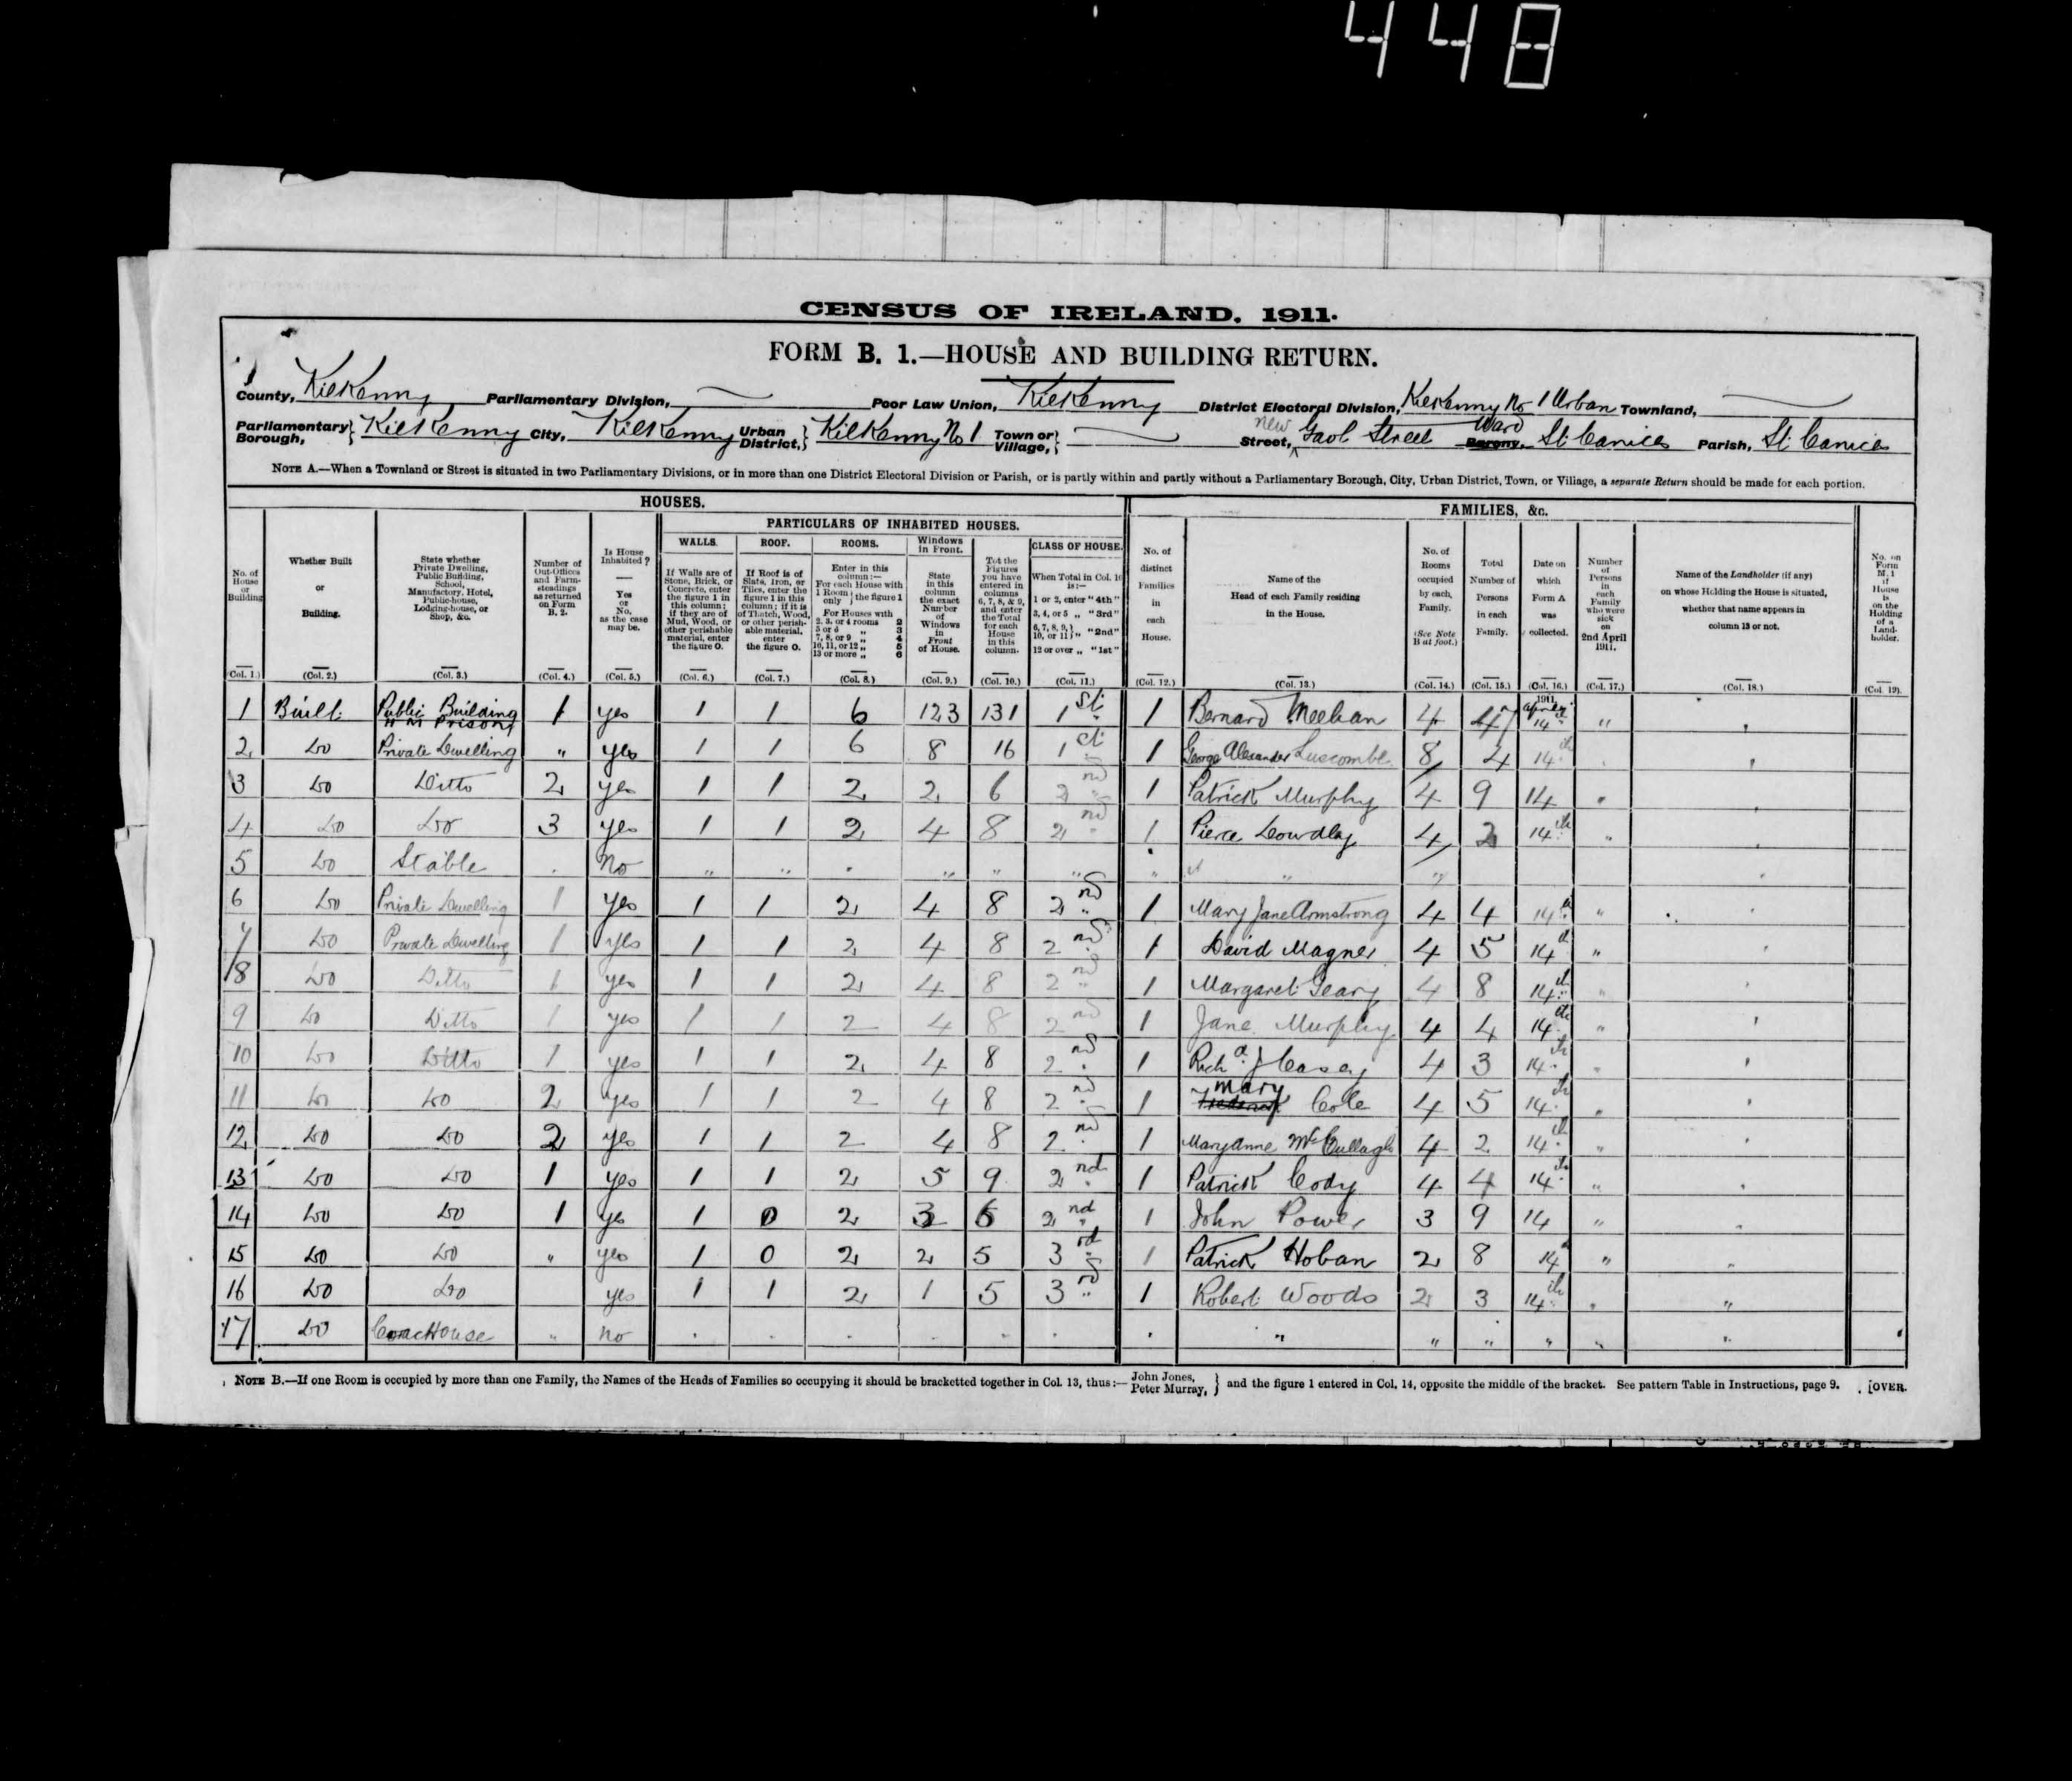 448
CENSUS OF IRELAND, 1911.
FORM B. 1.—HOUSE AND BUILDING RETURN.
County, Kilkenny Parliamentary Division, Poor Law Union, Kilkenny District Electoral Division, Kilkenny No 1 Urban Townland,
Parliamentary Borough, } Kilkenny City, Kilkenny Urban District, } Kilkenny No 1 Town or Village, } Street, New Gaol Street Barony, Ward St. Canices Parish, St. Canices
NOTE A.—When a Townland or Street is situated in two Parliamentary Divisions, or in more than one District Electoral Division or Parish, or is partly within and partly without a Parliamentary Borough, City, Urban District, Town, or Village, a separate Return should be made for each portion.
HOUSES. FAMILIES, &c.
PARTICULARS OF INHABITED HOUSES.
WALLS. ROOF. ROOMS. Windows in Front. CLASS OF HOUSE.
No. of House or Building
Whether Built or Building.
State whether Private Dwelling, Public Building, School, Manufactory, Hotel, Public-house, Lodging-house, or Shop, &c.
Number of Out-Offices and Farm-steadings as returned on Form B. 2.
Is House Inhabited? Yes or No, as the case may be.
If Walls are of Stone, Brick, or Concrete, enter the figure 1 in this column; if they are of Mud, Wood, or other perishable material, enter the figure 0.
If Roof is of Slate, Iron, or Tiles, enter the figure 1 in this column; if it is of Thatch, Wood, or other perishable material, enter the figure 0.
Enter in this column:—
For each House with 1 Room only } the figure 1
For Houses with
2, 3, or 4 rooms 2
5 or 6 „ 3
7, 8, or 9 „ 4
10, 11, or 12 „ 5
13 or more „ 6
State in this column the exact Number of Windows in Front of House.
Tot the Figures you have entered in columns 6, 7, 8, & 9, and enter the Total for each House in this column.
When Total in Col. 10 is:—
1 or 2, enter "4th"
3, 4, or 5 „ "3rd"
6, 7, 8, 9, 10, or 11 } „ "2nd"
12 or over „ "1st"
No. of distinct Families in each House.
Name of the Head of each Family residing in the House.
No. of Rooms occupied by each Family. (See Note B at foot.)
Total Number of Persons in each Family.
Date on which Form A was collected.
Number of Persons in each Family who were sick on 2nd April 1911.
Name of the Landholder (if any) on whose Holding the House is situated, whether that name appears in column 13 or not.
No. on Form M. 1 if House is on the Holding of a Landholder.
(Col. 1.) (Col. 2.) (Col. 3.) (Col. 4.) (Col. 5.) (Col. 6.) (Col. 7.) (Col. 8.) (Col. 9.) (Col. 10.) (Col. 11.) (Col. 12.) (Col. 13.) (Col. 14.) (Col. 15.) (Col. 16.) (Col. 17.) (Col. 18.) (Col. 19).
1 Built Public Building H M Prison 1 yes 1 1 6 123 131 1st 1 Bernard Meehan 4 47 1911 April 14th „
2 Do Private Dwelling „ yes 1 1 6 8 16 1st 1 George Alexander Luscombe 8 4 14th
3 Do Ditto 2 yes 1 1 2 2 6 2nd 1 Patrick Murphy 4 9 14 „
4 Do Do 3 yes 1 1 2 4 8 2nd 1 Pierce Dowdley 4 2 14th „
5 Do Stable No „ „ „ „ „ „ „ „ „
6 Do Private Dwelling 1 yes 1 1 2 4 8 2nd 1 Mary Jane Armstrong 4 4 14th „
7 Do Private Dwelling 1 yes 1 1 2 4 8 2nd 1 David Magner 4 5 14th „
8 Do Ditto 1 yes 1 1 2 4 8 2nd 1 Margaret Geary 4 8 14th „
9 Do Ditto 1 yes 1 1 2 4 8 2nd 1 Jane Murphy 4 4 14th „
10 Do Ditto 1 yes 1 1 2 4 8 2nd 1 Richd J Casey 4 3 14th „
11 Do Do 2 yes 1 1 2 4 8 2nd 1 Frederick Mary Cole 4 5 14th „
12 Do Do 2 yes 1 1 2 4 8 2nd 1 Maryanne McCullagh 4 2 14th „
13 Do Do 1 yes 1 1 2 5 9 2nd 1 Patrick Cody 4 4 14th „
14 Do Do 1 yes 1 0 2 3 6 2nd 1 John Power 3 9 14 „
15 Do Do „ yes 1 0 2 2 5 3rd 1 Patrick Hoban 2 8 14 „ „
16 Do Do yes 1 1 2 1 5 3rd 1 Robert Woods 2 3 14th „ „
17 Do CoacHouse „ no „ „ „ „ „ „
NOTE B.—If one Room is occupied by more than one Family, the Names of the Heads of Families so occupying it should be bracketted together in Col. 13, thus:— John Jones, Peter Murray, } and the figure 1 entered in Col. 14, opposite the middle of the bracket. See pattern Table in Instructions, page 9. [OVER.